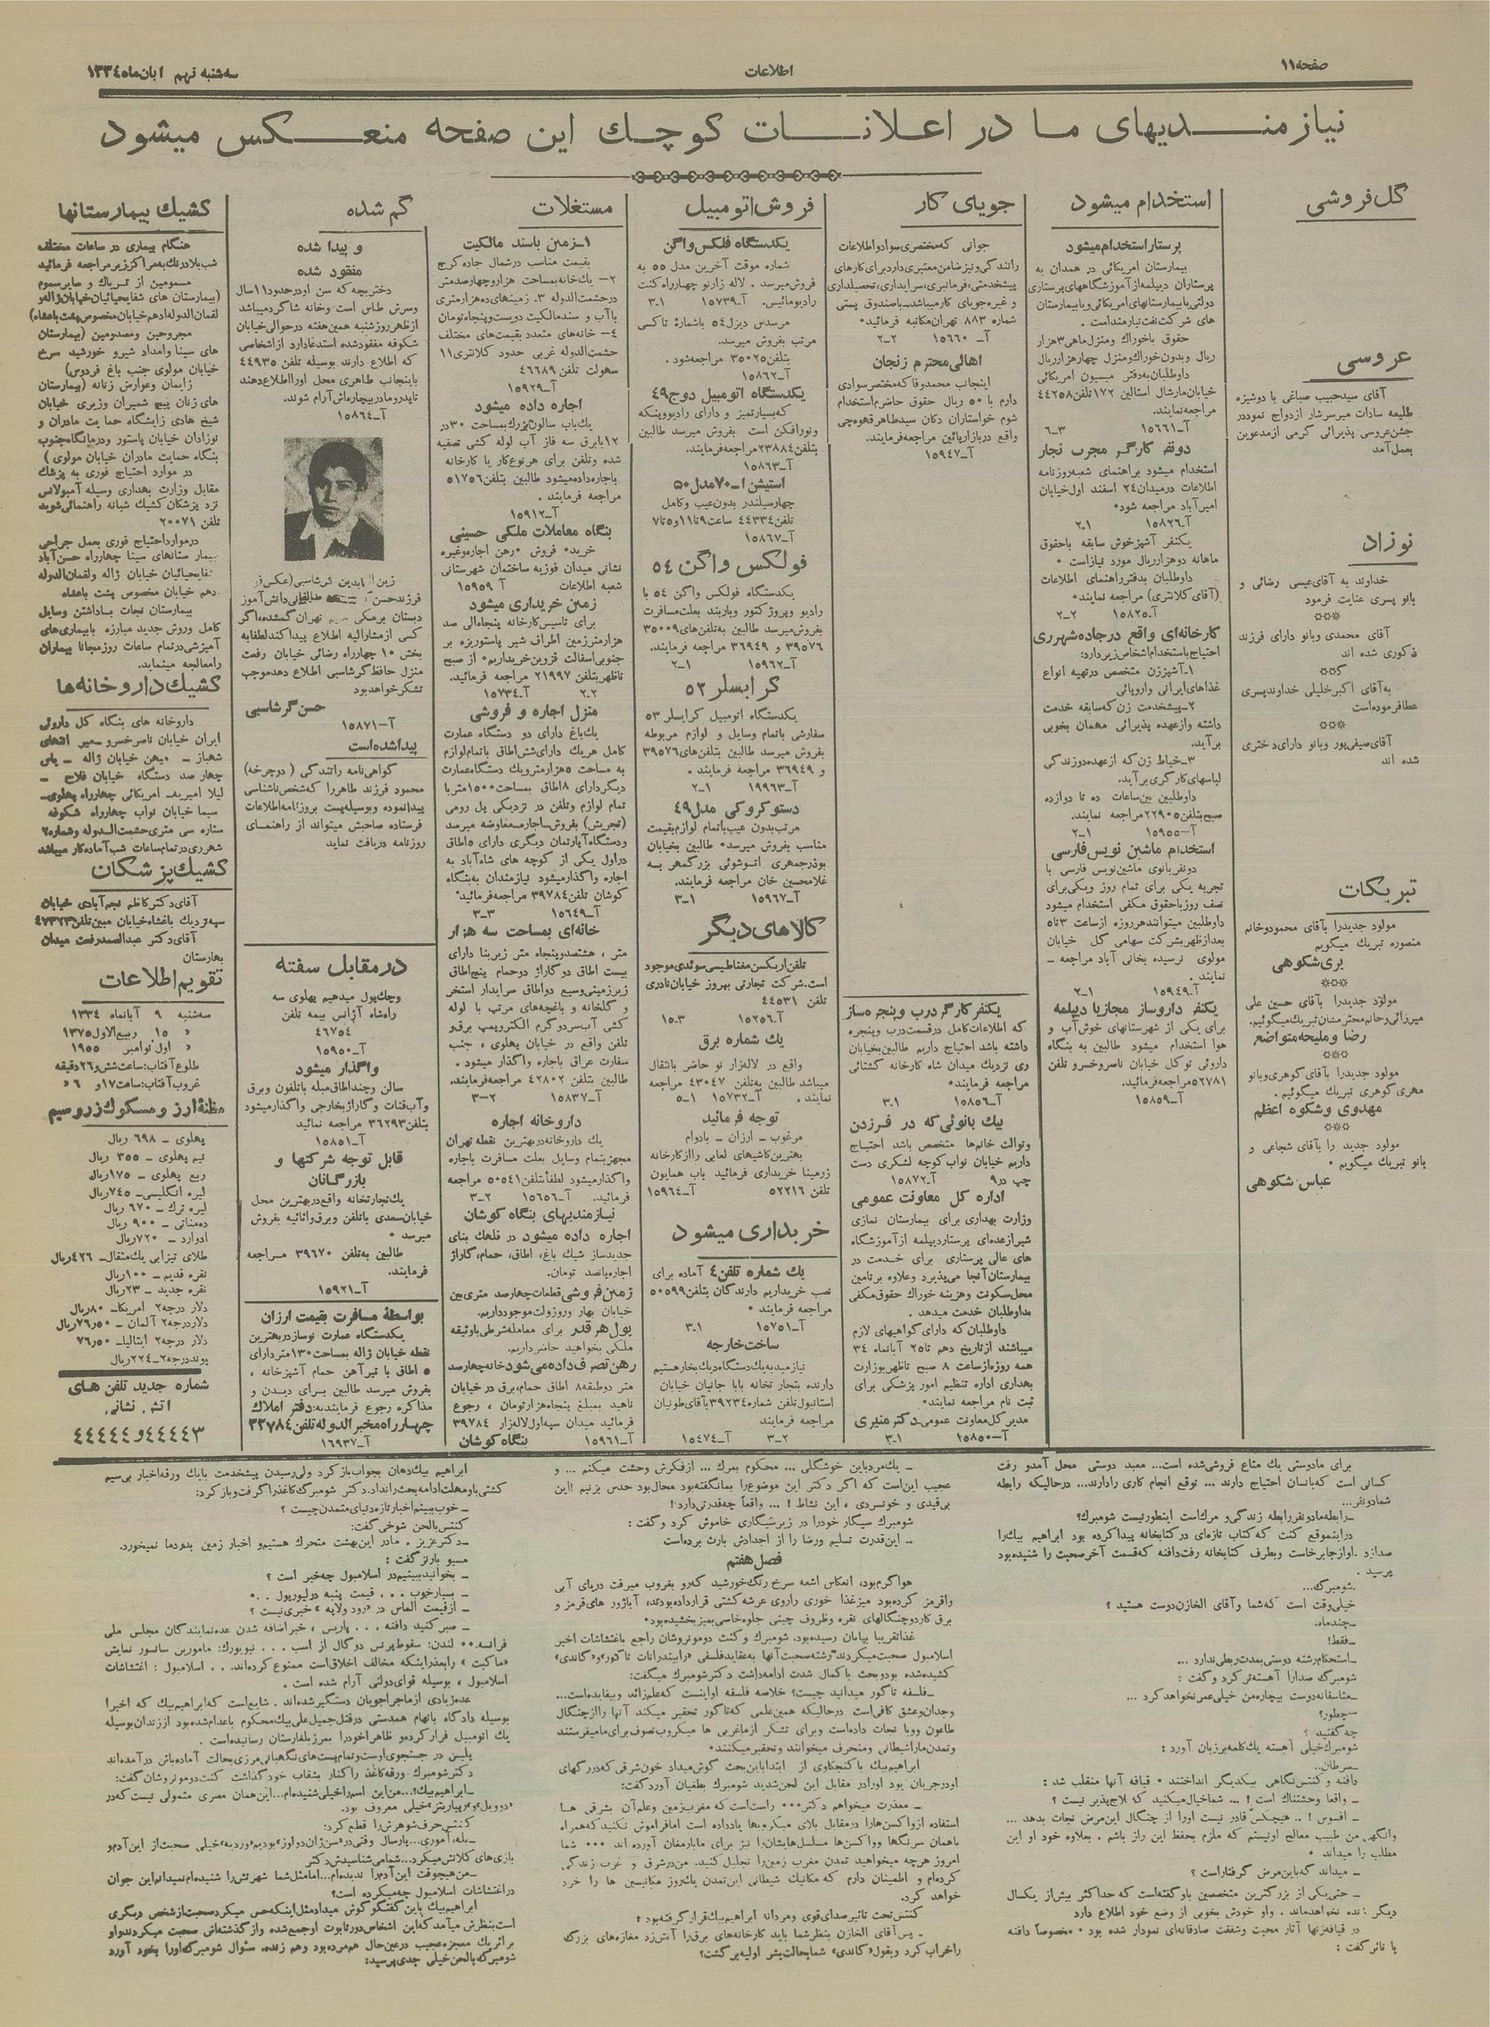 صفحه ۱۱
اطلاعات
سه‌شنبه نهم آبان‌ماه ۱۳۳۴
نیازمندیهای ما در اعلانات کوچک این صفحه منعکس میشود
گل‌فروشی
عروسی
آقای سیدحبیب صباغی با دوشیزه
طلیعه سادات میرسرشار ازدواج نموده‌در
جشن‌عروسی پذیرائی گرمی ازمدعوین
بعمل‌آمد
نوزاد
خداوند به آقای‌عیسی رضائی و
بانو پسری عنایت فرمود
آقای محمدی وبانو دارای فرزند
ذکوری شده اند
به‌آقای اکبرخلیلی خداوندپسری
عطافرموده‌است
آقای‌صیفی‌پور وبانو دارای‌دختری
شده اند
تبریکات
مولود جدیدرا بآقای محمودوخانم
منصوره تبریك میگویم
پری‌شکوهی
مولود جدیدرا بآقای حسین علی
میرزائی‌وخانم‌محترمشان‌تبریك‌میگوئیم.
رضا و ملیحه‌متواضع
مولود جدیدرا بآقای‌گوهری‌وبانو
مهری‌گوهری تبریك میگوئیم.
مهدوی وشکوه اعظم
مولود جدید را بآقای شجاعی و
بانو تبریك میگویم •
عباس شکوهی
استخدام میشود
پرستار استخدام‌میشود
بیمارستان امریکائی در همدان به
پرستاران دیپلمه‌از آموزشگاههای‌پرستاری
دولتی‌یابیمارستانهای امریکائی‌وبیمارستان
های شرکت‌نفت‌نیازمنداست.
حقوق باخوراك ومنزل‌ماهی۳هزار
ریال وبدون‌خوراك‌ومنزل چهارهزارریال
داوطلبان‌به‌دفتر میسیون امریکائی
خیابان‌مارشال استالین ۱۷۲تلفن۴۴۲۵۸
مراجعه‌نمایند.
آ-۱۵۶۶۱ ۳-۶
دونفر کارگر مجرب نجار
استخدام میشود براهنمای شعبه‌روزنامه
اطلاعات درمیدان۲۴ اسفند اول‌خیابان
امیرآباد مراجعه شود•
آ-۱۵۸۲۶ ۱-۲
یکنفر آشپزخوش سابقه باحقوق
ماهانه دوهزارریال مورد نیازاست •
داوطلبان بدفترراهنمای اطلاعات
(آقای‌کلانتری) مراجعه نمایند•
آ-۱۵۸۲۵ ۲-۲
کارخانه‌ای واقع درجاده‌شهرری
احتیاج‌باستخدام‌اشخاص‌زیردارد:
۱-آشپززن متخصص درتهیه انواع
غذاهای‌ایرانی واروپائی
۲-پیشخدمت زن‌که‌سابقه خدمت
داشته وازعهده پذیرائی مهمان بخوبی
برآید.
۳-خیاط زن‌که ازعهده‌دوزندگی
لباسهای‌کارگری‌برآید.
داوطلبین بین‌ساعات ده تا دوازده
صبح‌بتلفن۲۲۹۰۵مراجعه نمایند.
آ-۱۵۹۵۵ ۱-۲
استخدام ماشین نویس‌فارسی
دونفربانوی ماشین‌نویس فارسی با
تجربه یکی برای تمام روز ویکی‌برای
نصف روزباحقوق مکفی استخدام میشود
داوطلبین میتوانندهرروزه ازساعت ۳تا۵
بعدازظهربشرکت سهامی گل خیابان
مولوی نرسیده بخانی آباد مراجعه -
نمایند.
آ-۱۵۹۴۹ ۱-۲
یکنفر داروساز مجازیا دیپلمه
برای یکی از شهرستانهای خوش‌آب و
هوا استخدام میشود طالبین به بنگاه
داروئی توکل خیابان ناصرخسرو تلفن
۵۲۷۸۱مراجعه‌فرمائید.
آ-۱۵۸۵۹
جویای کار
جوانی که‌مختصری‌سوادواطلاعات
رانندگی‌ونیزضامن‌معتبری‌داردبرای‌کارهای
پیشخدمتی،فرمانبری،سرایداری،تحصیلداری
وغیره‌جویای کارمیباشد-باصندوق پستی
شماره ۸۸۳ تهران‌مکاتبه فرمائید•
آ- ۱۵۶۶۰ ۲-۲
اهالی‌محترم زنجان
اینجانب محمدرفا‌که‌مختصرسوادی
دارم با ۵۰ ریال حقوق حاضرم‌استخدام
شوم خواستاران دکان سیدطاهرقهوه‌چی
واقع دربازارپائین مراجعه‌فرمایند.
آ-۱۵۹۴۷
یکنفرکارگردرب وپنجره‌ساز
که اطلاعات‌کامل درقسمت‌درب وپنجره
داشته باشد احتیاج داریم طالبین‌بخیابان
ری نزدیك میدان شاه کارخانه کشتائی
مراجعه فرمایند•
آ-۱۵۸۵۶ ۱-۳
بیك بانوئی‌که در فرزدن
وتوالت خانمها متخصص باشد احتیاج
داریم خیابان نواب کوچه لشکری دست
چپ در۹ آ-۱۵۸۷۲
اداره کل معاونت عمومی
وزارت بهداری برای بیمارستان نمازی
شیرازعده‌ای پرستاردیپلمه ازآموزشگاه
های عالی پرستاری برای خدمت در
بیمارستان‌آنجا می‌پذیرد وعلاوه برتامین
محل‌سکونت وهزینه خوراك حقوق‌مکفی
بداوطلبان خدمت میدهد.
داوطلبان‌که دارای گواهیهای لازم
میباشند ازتاریخ دهم تا۲۵ آبانماه ۳۴
همه روزه‌ازساعت ۸ صبح تاظهربوزارت
بهداری اداره تنظیم امور پزشکی برای
ثبت نام مراجعه نمایند•
مدیرکل معاونت عمومی-دکترمنیری
آ-۱۵۸۵۰ ۱-۳
فروش اتومبیل
یکدستگاه فلکس‌واگن
شماره موقت آخرین مدل ۵۵ به
فروش‌میرسد. لاله زارنو چهارراه‌کنت
رادیومائیس. آ-۱۵۷۳۹ ۱-۳
مرسدس دیزل۵۴ باشماره تاکسی
مرتب بفروش میرسد.
بتلفن۳۵۰۲۵ مراجعه‌شود.
آ-۱۵۸۶۲
یکدستگاه اتومبیل دوج۴۹
که‌بسیارتمیز و دارای رادیووپینکه
ونورافکن‌است بفروش میرسد طالبین
بتلفن۲۳۸۸۴مراجعه‌فرمایند.
آ-۱۵۸۶۳
استیشن ا-۷۰مدل۵۰
چهارسیلندر بدون‌عیب وکامل
تلفن۴۴۳۳۴ ساعت۹تا۱۱و۵تا۷
آ-۱۵۸۶۷
فولکس واگن ۵۴
یکدستگاه فولکس واگن ۵۴ با
رادیو وپروژکتور وباربند بعلت‌مسافرت
بفروش‌میرسد طالبین به‌تلفن‌های۳۵۰۰۹
۳۹۵۷۶ و ۳۶۹۴۹ مراجعه فرمایند.
آ-۱۵۹۶۲ ۱-۲
کرایسلر ۵۳
یکدستگاه اتومبیل کرایسلر ۵۳
سفارشی باتمام وسایل و لوازم مربوطه
بفروش میرسد طالبین بتلفن‌های۳۹۵۷۶
و ۳۶۹۴۹ مراجعه فرمایند •
آ-۱۹۹۶۳ ۱-۲
دستوکروکی مدل۴۹
مرتب‌بدون عیب‌باتمام لوازم‌بقیمت
مناسب بفروش میرسد• طالبین بخیابان
بوذرجمهری اتوشوئی بزرگمهر بـه
غلامحسین خان مراجعه فرمایند.
آ-۱۵۹۶۷ ۱-۳
کالاهای‌دیگر
تلفن‌اریکسن‌مغناطیسی‌سوئدی‌موجود
است.شرکت تجارتی بهروز خیابان‌نادری
تلفن ۴۴۵۳۱
آ-۱۵۲۵۶ ۳-۱۵
یك شماره برق
واقع در لاله‌زار نو حاضر بانتقال
میباشد طالبین به‌تلفن ۴۳۰۴۷ مراجعه
نمایند • آ-۱۵۷۳۲ ۱-۵
توجه فرمائید
مرغوب - ارزان - بادوام
بهترین‌کاشیهای لعابی راازکارخانه
زرمینا خریداری فرمائید باب همایون
تلفن ۵۲۲۱۶ آ-۱۵۹۶۴
خریداری میشود
یك شماره تلفن۴ آماده برای
نصب خریداریم دارندگان بتلفن۵۰۵۹۹
مراجعه فرمایند •
آ-۱۵۷۵۱ ۱-۳
ساخت‌خارجه
نیازمندبه‌یك‌دستگاه‌دیك‌بخارهستیم
دارنده بتجارتخانه بابا جانیان خیابان
استانبول‌تلفن شماره۳۹۲۳۴باآقای‌طونیان
مراجعه فرمایند
آ-۱۵۴۷۴ ۲-۳
مستغلات
۱-زمین باسند مالکیت
بقیمت مناسب درشمال جاده کرج
۲- یك‌خانه‌بمساحت هزاروچهارصدمتر
درحشمت‌الدوله ۳- زمینهای‌ده‌هزارمتری
باآب و سندمالکیت دوست‌وپنجاه‌تومان
۴- خانه‌های متعدد بقیمت‌های مختلف
حشمت‌الدوله غربی حدود کلانتری۱۱
سهولت تلفن ۴۶۶۸۹
آ-۱۵۹۲۹
اجاره داده میشود
یك‌باب سالون‌بزرك‌بمساحت ۳۰در
۱۲بابرق سه فاز آب لوله کشی تصفیه
شده وتلفن برای هرنوع‌کار یا کارخانه
باجاره‌داده‌میشود طالبین بتلفن۵۱۷۵۶
مراجعه فرمایند •
آ-۱۵۹۱۲
بنگاه معاملات ملکی حسینی
خرید• فروش •رهن اجاره‌وغیره
نشانی میدان فوزیه ساختمان شهرستانی
شعبه اطلاعات آ ۱۵۹۵۹
زمین خریداری میشود
برای تاسیس‌کارخانه پنجاه‌الی صد
هزارمترزمین اطراف شیر پاستوریزه بر
جنوبی‌اسفالت قزوین‌خریداریم• از صبح
تاظهربتلفن ۲۱۹۹۷ مراجعه فرمائید.
آ-۱۵۷۳۴ ۲-۲
منزل اجاره و فروشی
یك‌باغ دارای دو دستگاه عمارت
کامل هریك دارای‌شش‌اطاق باتمام‌لوازم
به مساحت ۵هزارمترویك دستگاه‌عمارت
دیگردارای ۸اطاق بمساحت۱۵۰۰متربا
تمام لوازم وتلفن در نزدیکی پل رومی
(تجریش) بفروش-اجاره-معاوضه میرسد
ودستگاه‌آپارتمان دیگری دارای ۵اطاق
دراول یکی از کوچه های شاه‌آباد به
اجاره واگذارمیشود نیازمندان به‌بنگاه
کوشان تلفن۳۹۷۸۴ مراجعه‌فرمائید•
آ-۱۵۶۴۹ ۳-۳
خانه‌ای بمساحت سه هزار
متر ، هشتصدوپنجاه متر زیربنا دارای
بیست اطاق دوگاراژ دوحمام پنج‌اطاق
زیرزمینی‌وسیع دواطاق سرایدار استخر
و گلخانه و باغچه‌های مرتب با لوله
کشی آب‌سردوگرم الکتروپمپ برق‌و
تلفن واقع در خیابان پهلوی ، جنب
سفارت عراق باجاره واگذار میشود •
طالبین بتلفن ۴۲۸۰۲ مراجعه‌فرمایند.
آ-۱۵۸۳۷ ۲-۳
داروخانه اجاره
یك داروخانه‌دربهترین نقطه تهران
مجهزبتمام وسایل بعلت مسافرت باجاره
واگذارمیشود لطفأبتلفن۵۰۵۴۱ مراجعه
فرمائید. آ-۱۵۶۵۶ ۲-۳
نیازمندیهای بنگاه کوشان
اجاره داده میشود در قلهك بنای
جدیدساز شیك باغ، اطاق، حمام،گاراژ
اجاره‌پانصد تومان.
زمین‌فروشی قطعات‌چهارصد متری‌بین
خیابان بهار وروزولت موجودداریم.
پول هرقدر برای معامله‌شرطی‌باوثیقه
ملکی بخواهید حاضرداریم.
رهن تصرف داده‌می‌شودخانه‌چهارصد
متر دوطبقه۸ اطاق حمام،برق در خیابان
ناهید بمبلغ پنجاه‌هزارتومان ، رجوع
فرمائید میدان سپه‌اول‌لاله‌زار ۳۹۷۸۴
آ-۱۵۹۶۱ بنگاه‌کوشان
گم شده
و پیدا شده
مفقود شده
دختربچه‌که سن اودرحدود۱۱سال
وسرش طاس است وخانه شاگردمیباشد
ازظهرروزشنبه همین‌هفته درحوالی‌خیابان
شکوفه مفقودشده استدعادارد ازاشخاصی
که اطلاع دارند بوسیله تلفن ۴۴۹۳۵
باینجانب طاهری محل اورااطلاع‌دهند
تاپدرومادربیچاره‌اش‌آرام شوند.
آ-۱۵۸۶۴
زین‌العابدین گرشاسبی(عکس‌فوق)
دبستان برمکی مقیم تهران گمشده‌،اگر
کسی ازمشارالیه اطلاع پیداکندلطفابه
بخش ۱۰ چهارراه رضائی خیابان رفعت
منزل حافظ‌گرشاسبی اطلاع دهدموجب
تشکرخواهدبود
حسن‌گرشاسبی
آ-۱۵۸۷۱
پیداشده‌است
گواهی‌نامه رانندگی (دوچرخه)
محمود فرزند طاهررا که‌شخص‌ناشناسی
پیدانموده وبوسیله‌پست بروزنامه‌اطلاعات
فرستاده صاحبش میتواند از راهنمـای
روزنامه دریافت نماید
درمقابل سفته
وچك‌پول میدهیم پهلوی سه
راه‌شاه آژانس بیمه تلفن
۴۶۷۵۴
آ-۱۵۹۵۰
واگذار میشود
سالن وچنداطاق‌مبله باتلفون وبرق
وآب‌قنات وگاراژبخارجی واگذارمیشود
بتلفن۳۶۲۹۳ مراجعه نمائید
آ-۱۵۸۵۱
قابل توجه شرکتها و
بازرگانان
یك‌تجارتخانه واقع‌دربهترین محل
خیابان‌سعدی باتلفن وبرق‌واثاثیه بفروش
میرسد •
طالبین به‌تلفن ۳۹۶۷۰ مـراجعه
فرمایند.
آ-۱۵۹۲۱
بواسطهٔ مسافرت بقیمت ارزان
یکدستگاه عمارت نوسازدربهترین
نقطه خیابان ژاله بمساحت۱۳۰متردارای
۵ اطاق با تیرآهن حمام آشپزخانه ،
بفروش میرسد طالبین برای دیدن و
مذاکره رجوع فرمایندبه:دفتر املاك
چهارراه‌مخبرالدوله‌تلفن۳۲۷۸۴
آ-۱۶۹۳۷
کشیك بیمارستانها
هنگام بیماری در ساعات مختلف
شب‌بلادرنك‌به‌مراکززیرمراجعه فرمائید
مسمومین از تریاك و سایرسموم
(بیمارستان های شفایحیائیان‌خیابان‌ژاله‌و
لقمان‌الدوله‌ادهم‌خیابان‌مخصوص‌پشت‌باغشاه)
مجروحین ومصدومین (بیمارستان
های سینا وامداد شیرو خورشید سرخ
خیابان مولوی جنب باغ فردوس)
زایمان وعوارض زنانه (بیمارستان
های زنان پیچ شمیران وزیری خیابان
شیخ هادی زایشگاه حمایت مادران و
نوزادان خیابان پاستور ودرمانگاه‌جنوب
بنگاه حمایت مادران خیابان مولوی )
در موارد احتیاج فوری به پزشك
مقابل وزارت بهداری وسیله آمبولانس
نزد پزشکان کشیك شبانه راهنمائی‌شوید
تلفن ۲۰۰۷۱
درموارداحتیاج فوری بعمل جراحی
بیمارستانهای سینا چهارراه حسن‌آباد
شفایحیائیان خیابان ژاله ولقمان‌الدوله
ادهم خیابان مخصوص پشت باغشاه
بیمارستان نجات بـاداشتن وسایل
کامل وروش جدید مبارزه بابیماری‌های
آمیزشی‌درتمام ساعات روزمجانا بیماران
رامعالجه مینماید.
کشیك داروخانه‌ها
داروخانه های بنگاه کل داروئی
ایران خیابان ناصرخسرو-میر انتهای
شهباز - میهن خیابان ژاله - یاس
چهارصد دستگاه خیابان فلاح -
لیلا امیریه- امریکائی چهارراه پهلوی-
سیما خیابان نواب چهارراه شکوفه
ستاره سی متری‌حشمت‌الدوله وشماره۲
شهرری‌درتمام‌ساعات شب‌آماده‌کار میباشد
کشیك‌پزشکان
آقای‌دکترکاظم نجم‌آبادی خیابان
سپه‌نزدیك باغشاه‌خیابان مبین‌تلفن۴۷۳۲۳
آقای دکتر عبدالصمدرفعت میدان
بهارستان
تقویم اطلاعات
سه‌شنبه ۹ آبانماه ۱۳۳۴
» ۱۵ ربیع‌الاول۱۳۷۵
» اول نوامبر ۱۹۵۵
طلوع‌آفتاب:ساعت‌شش‌و۲۶دقیقه
غروب‌آفتاب:ساعت۱۷و ۶ »
مظنهٔ ارز ومسکوك زروسیم
پهلوی - ۶۹۸ ریال
نیم پهلوی - ۳۵۵ ریال
ربع پهلوی - ۱۷۵ریال
لیره انگلیسی- ۷۴۵ریال
لیره ترك - ۶۷۰ ریال
ده‌مناتی - ۹۰۰ ریال
ادوارد - ۷۲۰ریال
طلای تیزابی یك‌مثقال- ۴۲۶ریال
نقره قدیم - ۱۰۰ریال
نقره جدید - ۲۳ریال
دلار درجه۲ امریکا- ۸۰ریال
دلاردرجه۲ آلمان - ۷۶٫۵۰ریال
دلار درجه۲ ایتالیا- ۷۶٫۵۰
پونددرجه۲-۲۲۴ریال
شماره جدید تلفن های
آتش نشانی
۴۴۴۴۳ و ۴۴۴۴۴
برای مادوستی یك متاع فروشی‌شده است... معبد دوستی محل آمدو رفت
کسانی است که‌بانسان احتیاج دارند ... توقع انجام کاری رادارند... درحالیکه رابطه
شمادونفر...
-رابطه‌مادونفررابطه زندگی و مرك‌است اینطورنیست شومبرك؟
دراینموقع کنت که‌کتاب تازه‌ای درکتابخانه پیداکرده بود ابراهیم بیك‌را
صدازد .اوازجابرخاست وبطرف کتابخانه رفت‌دافنه که‌قسمت آخرصحبت را شنیده‌بود
پرسید .
-شومبرك...
خیلی‌وقت است که‌شما وآقای الخازن‌دوست هستید ؟
-چندماه.
-فقط!
-استحکام‌رشته دوستی‌بمدت‌ربطی‌ندارد ...
شومبرك صدارا آهسته‌تر کرد و گفت :
-متأسفانه‌دوست بیچاره‌من خیلی‌عمرنخواهدکرد ...
-چطور؟
چه گفتید ؟
شومبرك‌خیلی آهسته یك‌کلمه‌برزبان آورد :
-سرطان..
دافنه و کنتس‌نگاهی بیکدیگر انداختند • قیافه آنها منقلب شد :
- واقعا وحشتناك است ! ... شماخیال‌میکنید که علاج‌پذیر نیست ؟
- افسوس ! .. هیچکس قادر نیست اورا از چنگال این‌مرض نجات بدهد ...
وانگهی من طبیب معالج اونیستم که ملزم بحفظ این راز باشم . بعلاوه خود او این
مطلب را میداند •
- میداند که‌باین‌مرض گرفتاراست ؟
- حتی‌یکی از بزرگترین متخصصین باوگفته‌است که حداکثر بیش‌از یکسال
دیگرزنده نخواهدماند . واو خودش بخوبی از وضع خود اطلاع دارد
در قیافه‌زنها آثار محبت وشفقت صادقانه‌ای نمودار شده بود • مخصوصاً دافنه
با تاثرگفت :
- یك‌مردباین خوشگلی ... محکوم بمرك ... ازفکرش وحشت میکنم ... و
عجیب این‌است که اگر دکتر این موضوع‌را بمانگفته‌بود محال‌بود حدس بزنیم !این
بی‌قیدی و خونسردی ، این نشاط ! ... واقعاً چه‌قدرتی‌دارد!
شومبرك سیگار خودرا در زیرسیگاری خاموش کرد و گفت :
- این‌قدرت تسلیم ورضا را از اجدادش بارث برده‌است
فصل هفتم
هواگرم‌بود، انعکاس اشعه سرخ رنك‌خورشید که‌رو بغروب میرفت دریای آبی
راقرمز کرده‌بود میزغذا خوری راروی عرشه‌کشتی قرارداده‌بودند، آباژور های‌قرمز و
برق کاردوچنگالهای نقره وظروف چینی جلوه‌خاصی‌بمیزبخشیده‌بود•
غذاتقریبا بپایان رسیده‌بود. شومبرك وکنت دومونروشان راجع باغتشاشات اخیر
اسلامبول صحبت‌میکردند«رشته‌صحبت‌آنها به‌عقایدفلسفی «رابیندرانات تاگور»و«گاندی»
کشیده‌شده بودوبحث باکمال شدت ادامه‌داشت دکترشومبرك میگفت:
-فلسفه تاگور میدانید چیست؟ خلاصه فلسفه اواینست که‌علم‌زائد وبیفایده‌است...
وجدان‌وعشق کافی‌است درحالیکه همین‌علمی که‌تاگور تحقیر میکند آنها راازچنگال
طاعون ووبا نجات داده‌است وبرای تشکر ازماغربی ها میکروب تصوف‌برای‌مامیفرستند
وتمدن‌ماراشیطانی ومنحرف میخوانند وتحقیرمیکنند•
ابراهیم‌بیك باکنجکاوی از ابتدا باین‌بحث گوش‌میداد خون‌شرقی که‌دررگهای
اودرجریان بود اورادر مقابل این لحن‌شدید شومبرك بطغیان آوردگفت:
- معذرت میخواهم دکتر... راست‌است که‌مغرب‌زمین وعلم‌آن بشرقی هـا
استفاده ازواکسن‌هارا درمقابل بلای میکروبها یادداده است امافراموش نکنیدکه‌همراه
باهمان سرنگها وواکسن‌ها مسلسل‌هایشان‌را نیز برای مابارمغان آورده اند ... شما
امروز هرچه میخواهید تمدن مغرب زمین‌را تجلیل کنید. من‌درشرق و غرب زندگی
کرده‌ام و اطمینان دارم که مکانیك شیطانی این‌تمدن یك‌روز مکانیسین ها را خرد
خواهد کرد.
کنتس‌تحت تاثیرصدای‌قوی ومردانه ابراهیم‌بیك‌قرارگرفته‌بود :
- پس‌آقای الخازن بنظرشما باید کارخانه‌های برق‌را آتش‌زد مغازه‌های بزرك
راخراب کرد وبقول«گاندی» شمابحالت‌بشر اولیه‌برگشت؟
ابراهیم بیك‌دهان بجواب‌باز کرد ولی‌رسیدن پیشخدمت بایك ورقه‌اخبار بی‌سیم
کشتی‌باومهلت‌ادامه‌بحث رانداد. دکتر شومبرك کاغذرا گرفت‌وباز کرد:
-خوب ببینیم‌اخبار تازه‌دنیای متمدن‌چیست ؟
کنتس‌بالحن شوخی گفت:
-دکترعزیز . مادر این‌بهشت متحرك هستیم‌و اخبار زمین بدردما نمیخورد.
مسیو بارنز گفت :
- بخوانید.ببینیم‌در اسلامبول چه‌خبر است ؟
- بسیارخوب ... قیمت پنبه درلیورپول ..•
- ازقیمت الماس در «رود ولایه» خبری‌نیست ؟
- صبر کنید دافنه ... پاریس ، خبراضافه شدن عده‌نمایندگان مجلس ملی
فرانسه.•• لندن: سقوط‌پرنس دوگال از اسب ... نیویورك: مامورین سانسور نمایش
«ماکبت» رابعذراینکه مخالف اخلاق‌است ممنوع کرده‌اند... اسلامبول : اغتشاشات
اسلامبول ، بوسیله قوای‌دولتی آرام شده است .
عده‌زیادی ازماجراجویان دستگیرشده‌اند . شایع‌است که‌ابراهیم‌بیك که اخیرا
بوسیله دادگاه باتهام همدستی درقتل‌جمیل‌علی‌بیك‌محکوم باعدام‌شده‌بود اززندان‌بوسیله
یك اتومبیل فرارکرده‌و ظاهراخودرا بمرزبلغارستان رسانیده‌است .
پلیس در جستجوی‌اوست‌وتمام‌پست‌های‌نگهبانی‌مرزی‌بحالت آماده‌باش درآمده‌اند
دکترشومبرك ورقه‌کاغذ راکنار بشقاب خودگذاشت کنت‌دومونروشان‌گفت:
-ابراهیم‌بیك؟...من‌این اسم‌راخیلی‌شنیده‌ام...این‌همان مصری متمولی نیست‌که‌در
«دوویل»و«بیاریتز»خیلی معروف بود.
کنتس‌حرف‌شوهرش‌را قطع‌کرد:
-بله،آموری...پارسال وقتی‌در«سن‌ژان‌دولوز»بودیم«وردیه»خیلی صحبت‌از این‌آدم‌و
بازی‌های کلانش میکرد...شمامی‌شناسیدش‌دکتر
-من‌هیچوقت این‌آدم‌را ندیده‌ام...امامثل‌شما شهرتش‌را شنیده‌ام‌نمیدانم‌این جوان
دراغتشاشات اسلامبول چه‌میکرده است؟
ابراهیم‌بیك باین‌گفتگوگوش میدادمثل‌اینکه‌حس میکردصحبت‌ازشخص دیگری
است‌بنظرش میآمدکه‌این اشخاص‌دورتابوت اوجمع‌شده وازگذشته‌اش صحبت میکردندواو
براثریك معجزه‌عجیب درعین‌حال هم‌مرده‌بود وهم زنده. سئوال شومبرك‌اورا بخود آورد
شومبرك‌بالحن‌خیلی جدی‌پرسید: